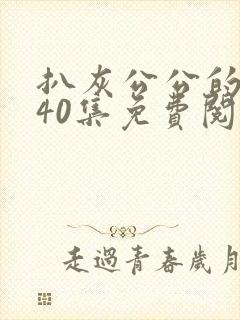 扒灰公公的
40集免費閱
走過青春歲月